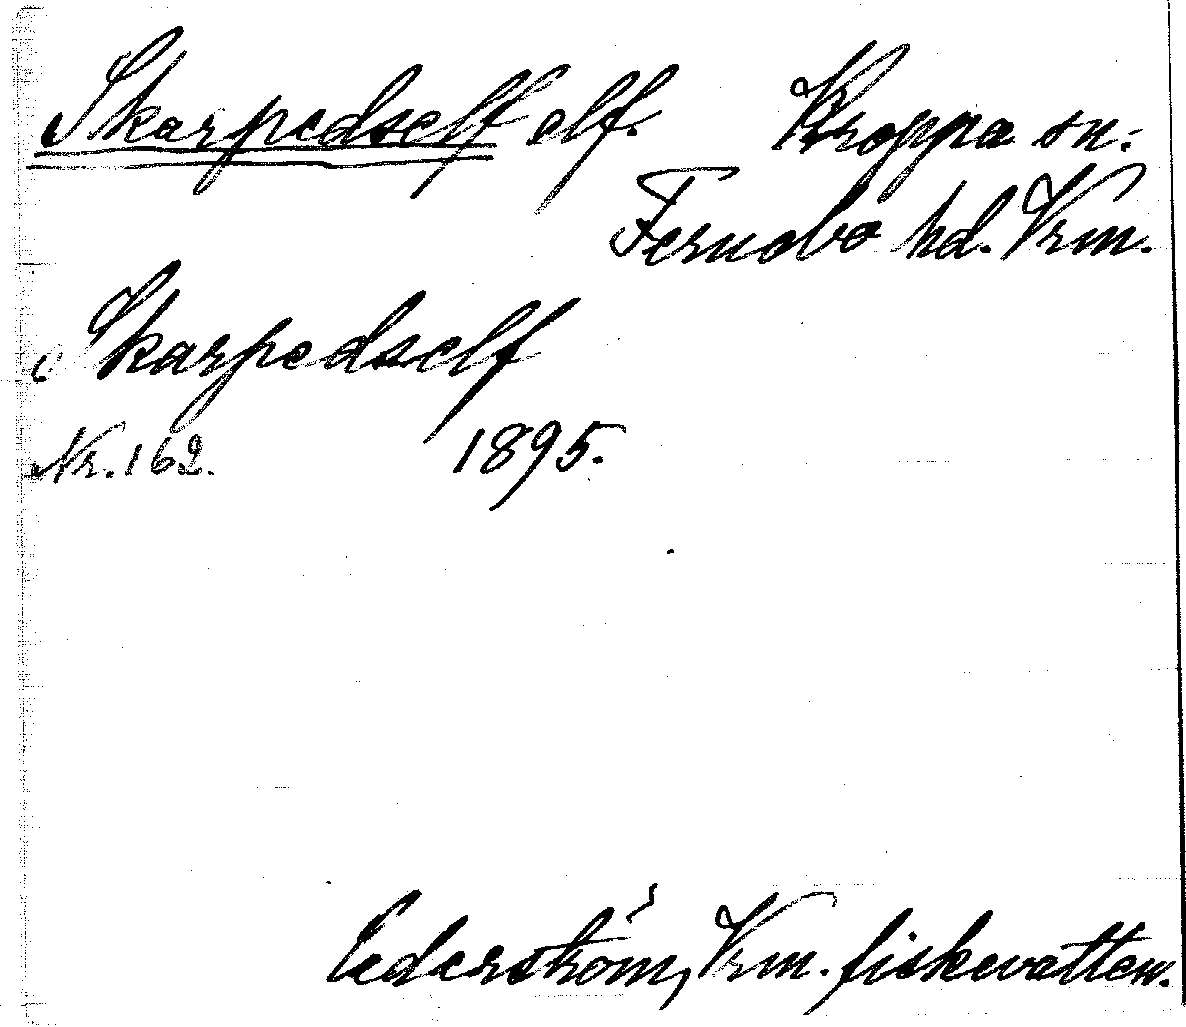 Skarpedself elf. Kroppa sn:
Fernebo hd. Vrm.
Skarpedself
Nr. 162. 1895.
Cederström, Vrm. fiskevatten.